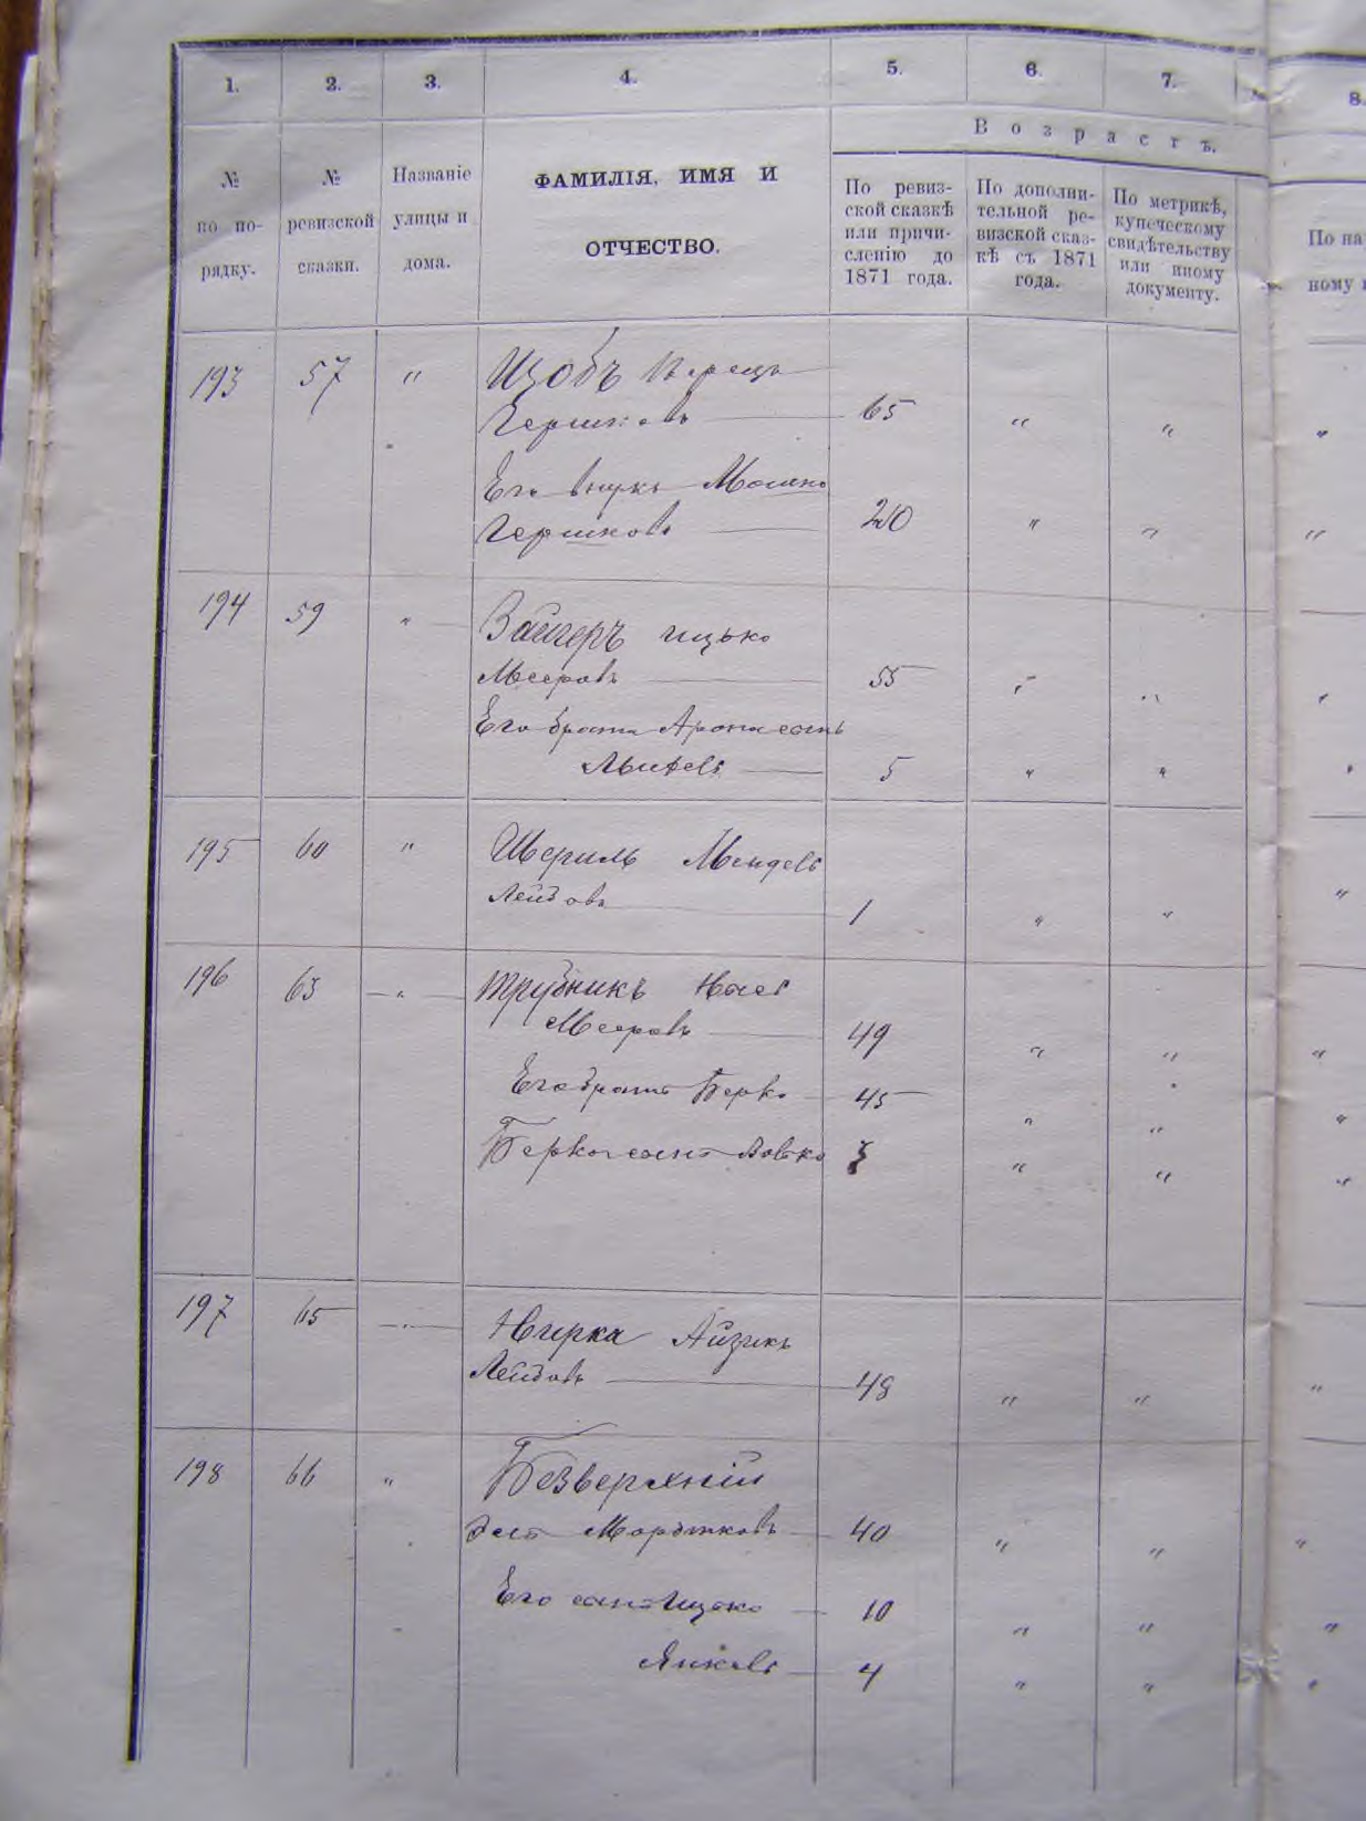 1. 2. 3. 4. 5. 6. 7. 8.
Возрастъ.
№ по по-рядку.
№ ревизской сказки.
Названіе улицы и дома.
ФАМИЛІЯ, ИМЯ И
ОТЧЕСТВО.
По ревиз-
ской сказкѣ
или причи-
сленію до
1871 года.
По дополни-
тельной ре-
визской сказ-
кѣ съ 1871
года.
По метрикѣ,
купеческому
свидѣтельству
или иному
документу.
По на
ному
193 57 "
Гершковъ 65 " " "
Его внукъ Мошко
Гершковъ 20 " " "
194 59 " Вайнеръ Ицько
Мееровъ 55 " " "
Его брата Арона сынъ
5 " " "
195 60 " Шериль Мендель
Лейбовъ 1 " " "
196 63 " Трубникъ
Мееровъ 49 " " "
Его братъ Берко 45 " " "
Берко сынъ Вовко " " "
197 65 " Айзикъ
Лейбовъ 48 " " "
198 66 " Безверхній
Мордковъ 40 " " "
Его сынъ Ицько 10 " " "
Янкель 4 " " "